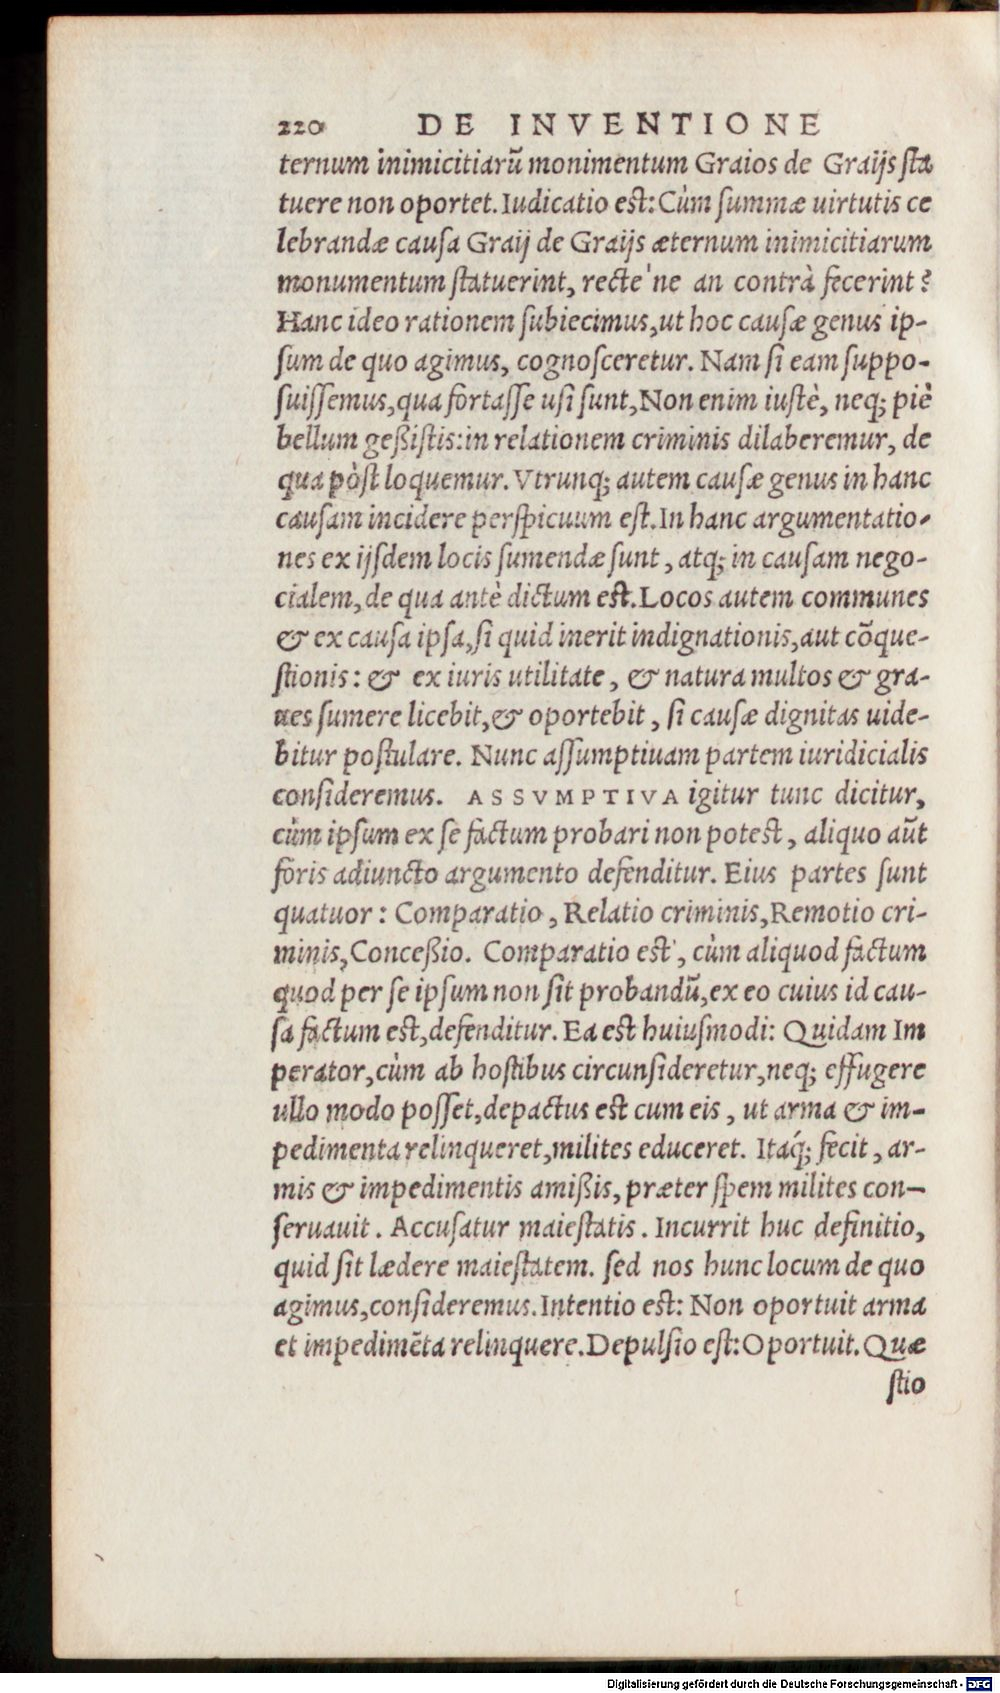 220 DE INVENTIONE
ternum inimicitiarũ monimentum Graios de Graijs ſta
tuere non oportet. Iudicatio eſt: Cùm ſummæ uirtutis ce
lebrandæ cauſa Graij de Graijs æternum inimicitiarum
monumentum ſtatuerint, recte'ne an contrà fecerint?
Hanc ideo rationem ſubiecimus, ut hoc cauſæ genus ip-
ſum de quo agimus, cognoſceretur. Nam ſi eam ſuppo-
ſuiſſemus, qua fortaſſe uſi ſunt, Non enim iuſtè, neq; piè
bellum geßiſtis: in relationem criminis dilaberemur, de
qua pòſt loquemur. Vtrunq; autem cauſæ genus in hanc
cauſam incidere perſpicuum eſt. In hanc argumentatio-
nes ex ijſdem locis ſumendæ ſunt, atq; in cauſam nego-
cialem, de qua antè dictum eſt. Locos autem communes
& ex cauſa ipſa, ſi quid inerit indignationis, aut cõque-
ſtionis: & ex iuris utilitate, & natura multos & gra-
ues ſumere licebit, & oportebit, ſi cauſæ dignitas uide-
bitur poſtulare. Nunc aſſumptiuam partem iuridicialis
conſideremus. ASSVMPTIVA igitur tunc dicitur,
cùm ipſum ex ſe factum probari non poteſt, aliquo aũt
foris adiuncto argumento defenditur. Eius partes ſunt
quatuor: Comparatio, Relatio criminis, Remotio cri-
minis, Conceßio. Comparatio eſt, cùm aliquod factum
quod per ſe ipſum non ſit probandũ, ex eo cuius id cau-
ſa factum eſt, defenditur. Ea eſt huiuſmodi: Quidam Im
perator, cùm ab hoſtibus circunſideretur, neq; effugere
ullo modo poſſet, depactus eſt cum eis, ut arma & im-
pedimenta relinqueret, milites educeret. Itaq́; fecit, ar-
mis & impedimentis amißis, præter ſpem milites con-
ſeruauit. Accuſatur maieſtatis. Incurrit huc definitio,
quid ſit lædere maieſtatem. ſed nos hunc locum de quo
agimus, conſideremus. Intentio eſt: Non oportuit arma
et impedimẽta relinquere. Depulſio eſt: Oportuit. Quæ
ſtio
Digitalisierung gefördert durch die Deutsche Forschungsgemeinschaft - DFG